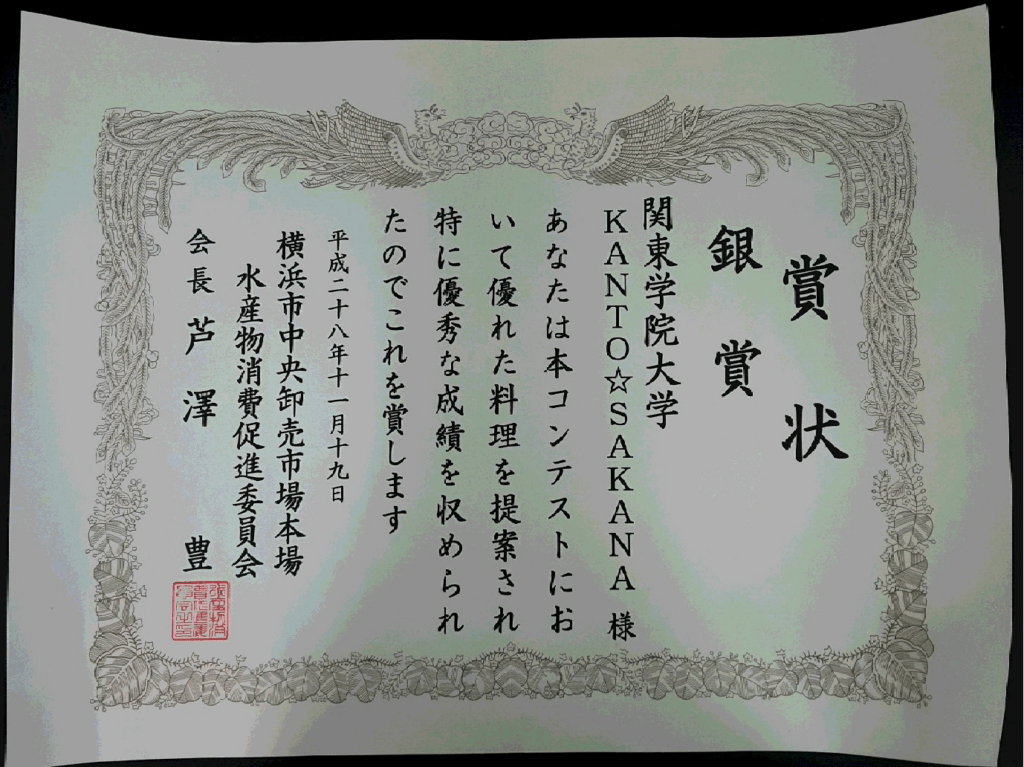 賞状
銀賞
関東学院大学
KANTO☆SAKANA 様
あなたは本コンテストにお
いて優れた料理を提案され
特に優秀な成績を収められ
たのでこれを賞します
平成二十八年十一月十九日
横浜市中央卸売市場本場
水産物消費促進委員会
会長 芦澤 豊